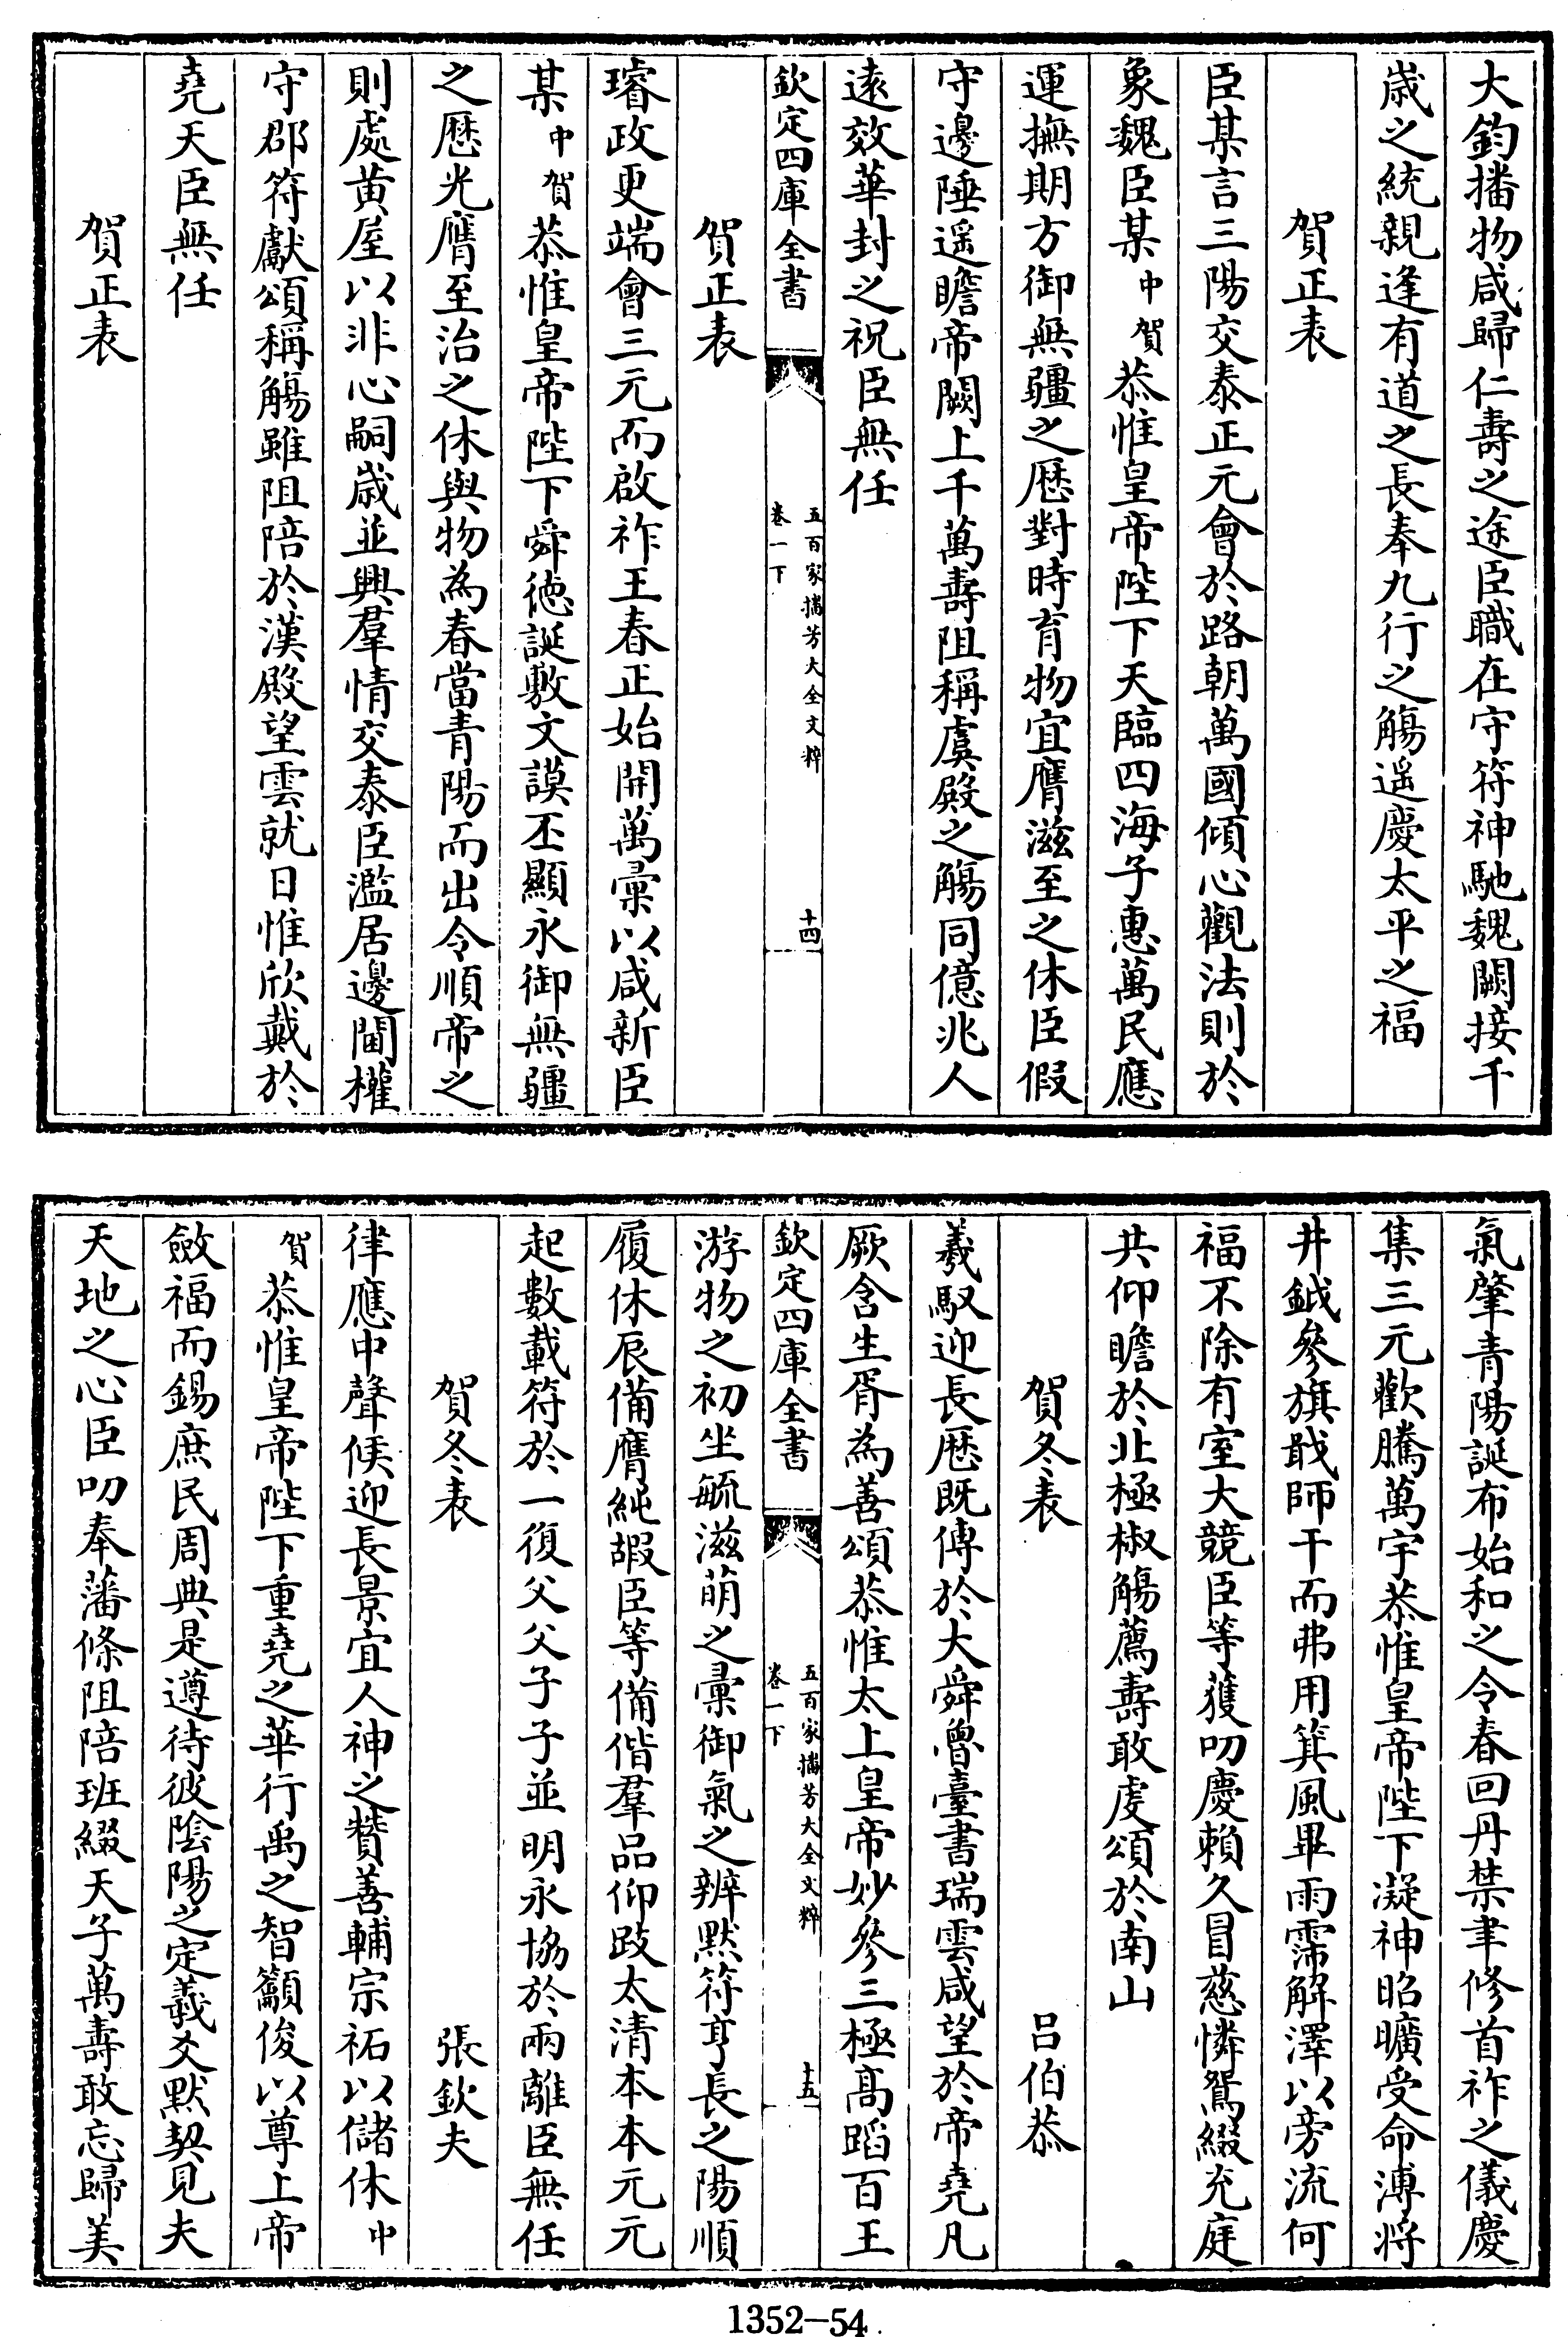 大鈞播物咸歸仁壽之途臣職在守符神馳魏闕接千
歳之統親逢有道之長奉九行之觴遥慶太平之福
賀正表
臣某言三陽交泰正元會於路朝萬國傾心觀法則於
象魏臣某中賀恭惟皇帝陛下天臨四海子惠萬民應
運撫期方御無疆之厯對時育物宜膺滋至之休臣假
守邊陲遥瞻帝闕上千萬壽阻稱虞殿之觴同億兆人
遠效華封之祝臣無任
欽定四庫全書
五百家播芳大全文粹
卷一下
十四
賀正表
璿政更端會三元而啟祚王春正始開萬彚以咸新臣
某中賀恭惟皇帝陛下舜徳誕敷文謨丕顯永御無疆
之厯光膺至治之休與物為春當青陽而出令順帝之
則處黄屋以非心嗣歳並興羣情交泰臣濫居邊閫權
守郡符獻頌稱觴雖阻陪於漢殿望雲就日惟欣戴於
堯天臣無任
賀正表
氣肇青陽誕布始和之令春回丹禁聿修首祚之儀慶
集三元歡騰萬宇恭惟皇帝陛下凝神昭曠受命溥將
井鉞參旗戢師干而弗用箕風畢雨霈解澤以旁流何
福不除有室大競臣等獲叨慶賴久冒慈憐鴛綴充庭
共仰瞻於北極椒觴薦壽敢虔頌於南山
賀冬表　吕伯恭
羲馭迎長厯既傳於大舜魯臺書瑞雲咸望於帝堯凡
厥含生胥為善頌恭惟太上皇帝妙參三極髙蹈百王
欽定四庫全書
五百家播芳大全文粹
卷一下
十五
游物之初坐毓滋萌之彚御氣之辨默符亨長之陽順
履休辰備膺純嘏臣等備偕羣品仰跂太清本本元元
起數載符於一復父父子子並明永協於兩離臣無任
賀冬表　張欽夫
律應中聲候迎長景宜人神之贊善輔宗祏以儲休中
賀恭惟皇帝陛下重堯之華行禹之智籲俊以尊上帝
斂福而錫庶民周典是遵待彼陰陽之定羲爻默契見夫
天地之心臣叨奉藩條阻陪班綴天子萬壽敢忘歸美
1352—54